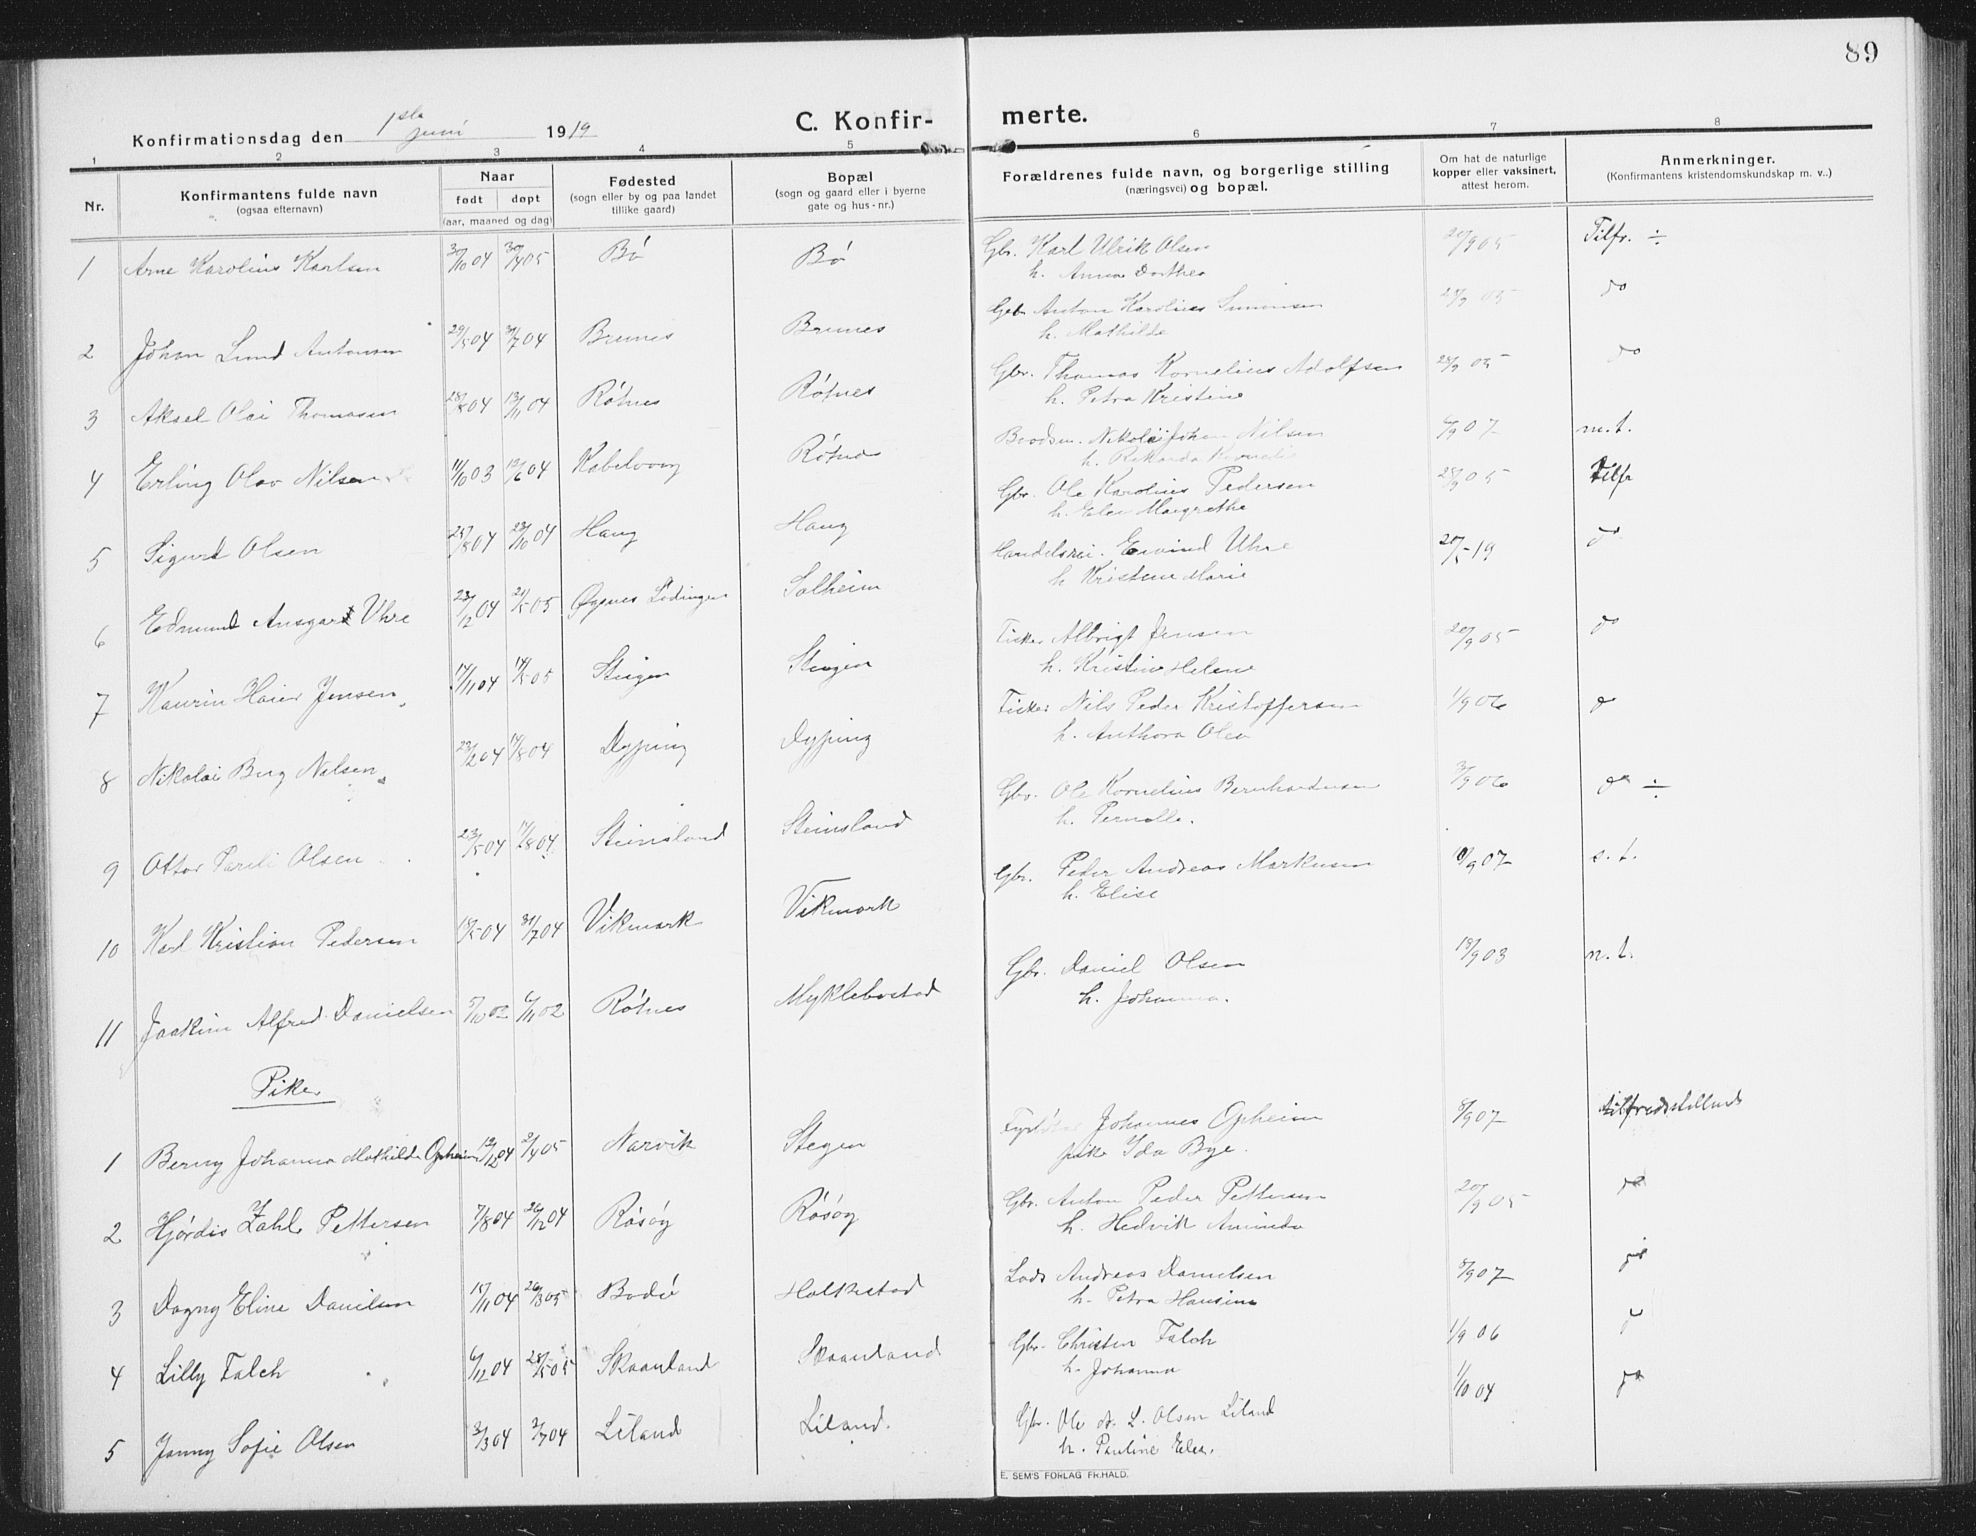 89
Konfirmationsdag den 1ste juni 1919
C. Konfirmerte.
1 2 3 4 5 6 7 8
Nr.
Konfirmantens fulde navn
(ogsaa efternavn)
Naar
født døpt
(aar, maaned og dag)
Fødested
(sogn eller by og paa landet
tillike gaard)
Bopæl
(sogn og gaard eller i byerne
gate og hus-nr.)
Forældrenes fulde navn, og borgerlige stilling
(næringsvei) og bopæl.
Om hat de naturlige
kopper eller vaksinert,
attest herom.
Anmerkninger.
(Konfirmantens kristendomskundskap m. v..)
1 Arne Karolius Karlsen 30/10 04 30/4 05 Bø Bø Gbr. Karl Ulrik Olsen 20/9 05 Tilfr. ÷
h. Anna Dorthea
2 Johan Lund Antonsen 29/5 04 31/7 04 Brunes Brunes Gbr Anton Karolius Simonsen do
h. Mathilde
3 Aksel Olai Thomasen 28/8 04 13/11 04 Røtnes Røtnes Gbr. Thomas Kornelius Adolfsen 25/9 05 do
h. Petra Kristine
4 Erling Olav Nilsen 11/10 03 12/6 04 Kabelvaag Røtnes Nikolai Johan Nilsen 6/9 07 m.t.
h. Rikarda
5 Sigurd Olsen 25/8 04 23/10 04 Haug Haug Gbr. Ole Karolius Pedersen 25/9 05 Tilfr
h. Elen Margrethe
6 Edmund Ansgar Uhre 23/12 04 21/5 05 Øgsnes Lødingen Solheim Handelsrei. Eivind Uhre 20/5 19 do
h. Kristine Marie
7 Kaurin Haier Jensen 17/11 04 14/5 05 Steigen Steigen Fisker Albrigt Jensen 20/9 05 do
h. Kristine Helene
8 Nikolai Berg Nilsen 23/2 04 14/8 04 Dyping Dyping Fisker Nils Peder Kristoffersen 1/9 06 do
h. Anthora Olea
9 Ottar Pareli Olsen 23/5 04 14/8 04 Steinsland Steinsland Gbr. Ole Kornelius Bernhardsen 3/9 06 do ÷
h. Pernelle.
10 Karl Kristian Pedersen 15/5 04 31/7 04 Vikmark Vikmark Gbr. Peder Andreas Markusen 10/9 07 s. t.
h. Elise
11 Joakim Alfred Danielsen 5/10 02 6/11 02 Røtnes Myklebostad Gbr. Daniel Olsen 18/9 03 n. t.
h. Johanna.
Piker
1 Berny Johanna Mathilde Opheim 12/12 04 2/4 05 Narvik Stegen Johannes Opheim 8/9 07 tilfredsstillende
pike Ida Bye.
2 Hjørdis Zahl Pettersen 7/8 04 26/12 04 Røsøy Røsøy Gbr. Anton Peder Pettersen 20/9 05 do
h. Hedvik Aminda
3 Dagny Eline Danilsen 15/11 04 26/3 05 Bodø Holkestad Lods Andreas Danielsen 8/9 07 do
h. Petra Hansine
4 Lilly Falch 6/12 04 28/5 05 Skaanland Skaanland Gbr. Christen Falch 1/9 06 do
h. Johanna
5 Jenny Sofie Olsen 3/3 04 3/7 04 Liland Liland. Gbr. Ole L. Olsen Liland 1/10 04 do
h. Pauline Elea.
E. SEM'S FORLAG FR.HALD.